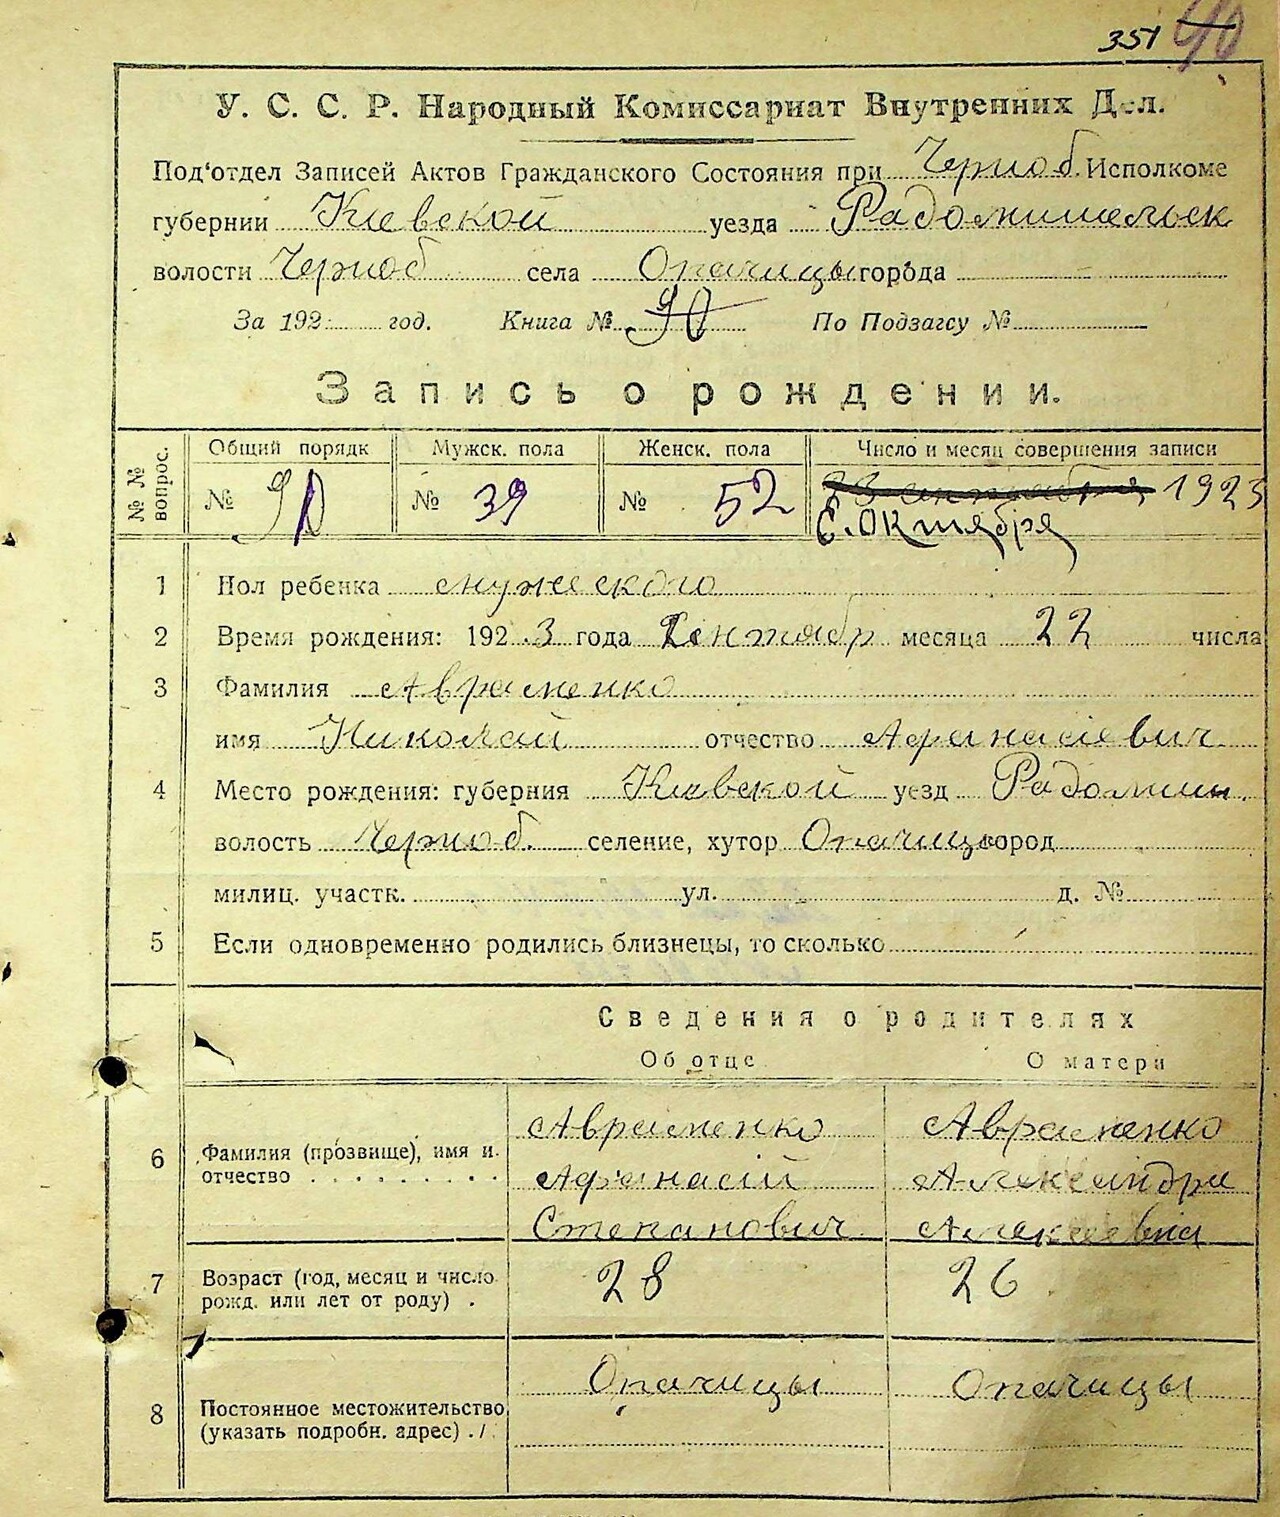 351 90
У. С. С. Р. Народный Комиссариат Внутренних Дел.
Под'отдел Записей Актов Гражданского Состояния при Черноб. Исполкоме
губернии Киевской уезда Радомишельск
волости Черноб села Опачицы города –
За 192 год. Книга № 90 По Подзагсу №
Запись о рождении.
№ № вопрос. Общий порядк Мужск. пола Женск. пола Число и месяц совершения записи
№ 90 № 39 № 52 23 сентября 1923
6. Октября
1 Пол ребенка мужеского
2 Время рождения: 192 3 года Сентябр месяца 22 числа
3 Фамилия Авраменко
имя Николай отчество Афанасіевич
4 Место рождения: губерния Киевской уезд Радомыш.
волость Черноб. селение, хутор Опачицы город
милиц. участк. ул. д. №
5 Если одновременно родились близнецы, то сколько
Сведения о родителях
Об отце О матери
6 Фамилия (прозвище), имя и отчество Авраменко Афанасій Степанович Авраменко Александра Алексеевна
7 Возраст (год, месяц и число рожд. или лет от роду) . 28 26
8 Постоянное местожительство (указать подробн. адрес) . Опачицы Опачицы